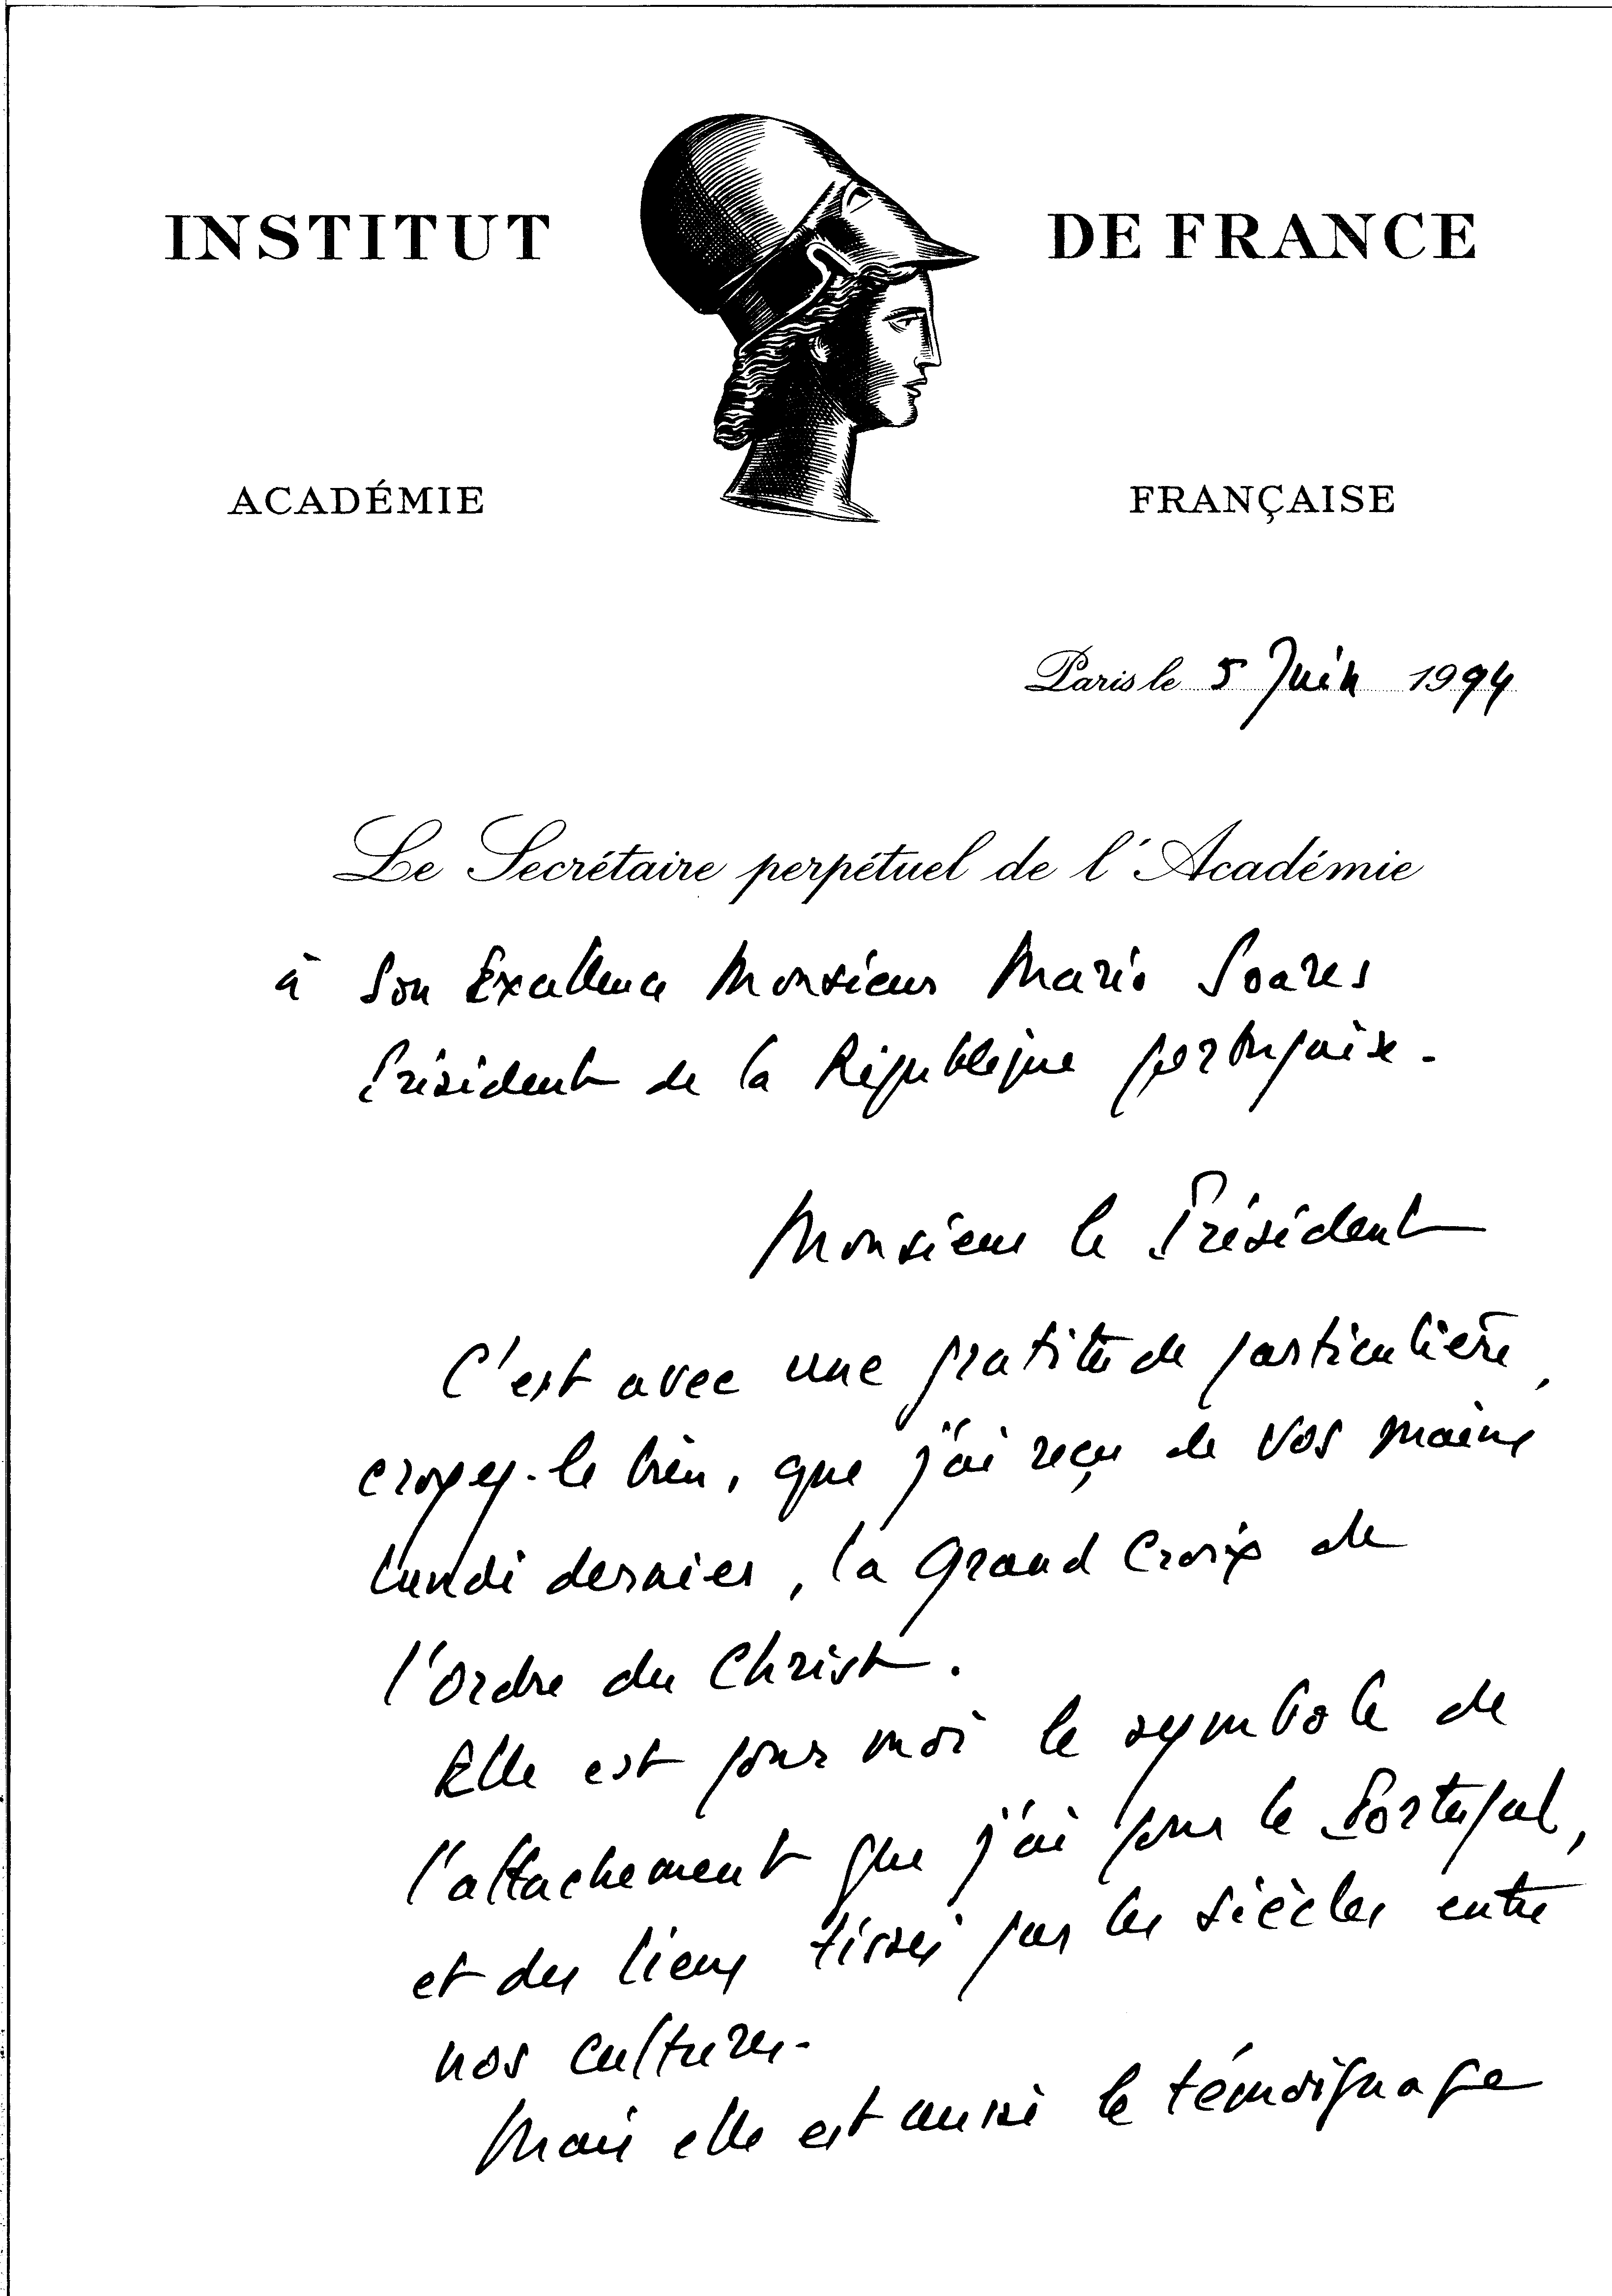 INSTITUT DE FRANCE
ACADÉMIE FRANÇAISE
Paris le 5 Juin 1994
Le Secrétaire perpétuel de l'Académie
à Son Excellence Monsieur Mario Soares
Président de la République portugaise.
Monsieur le Président
C'est avec une gratitude particulière,
croyez-le bien, que j'ai reçu de vos mains
lundi dernier, la Grand Croix de
l'Ordre du Christ.
Elle est pour moi le symbole de
l'attachement que j'ai pour le Portugal,
et des liens tissés par les siècles entre
nos cultures.
Mais elle est aussi le témoignage